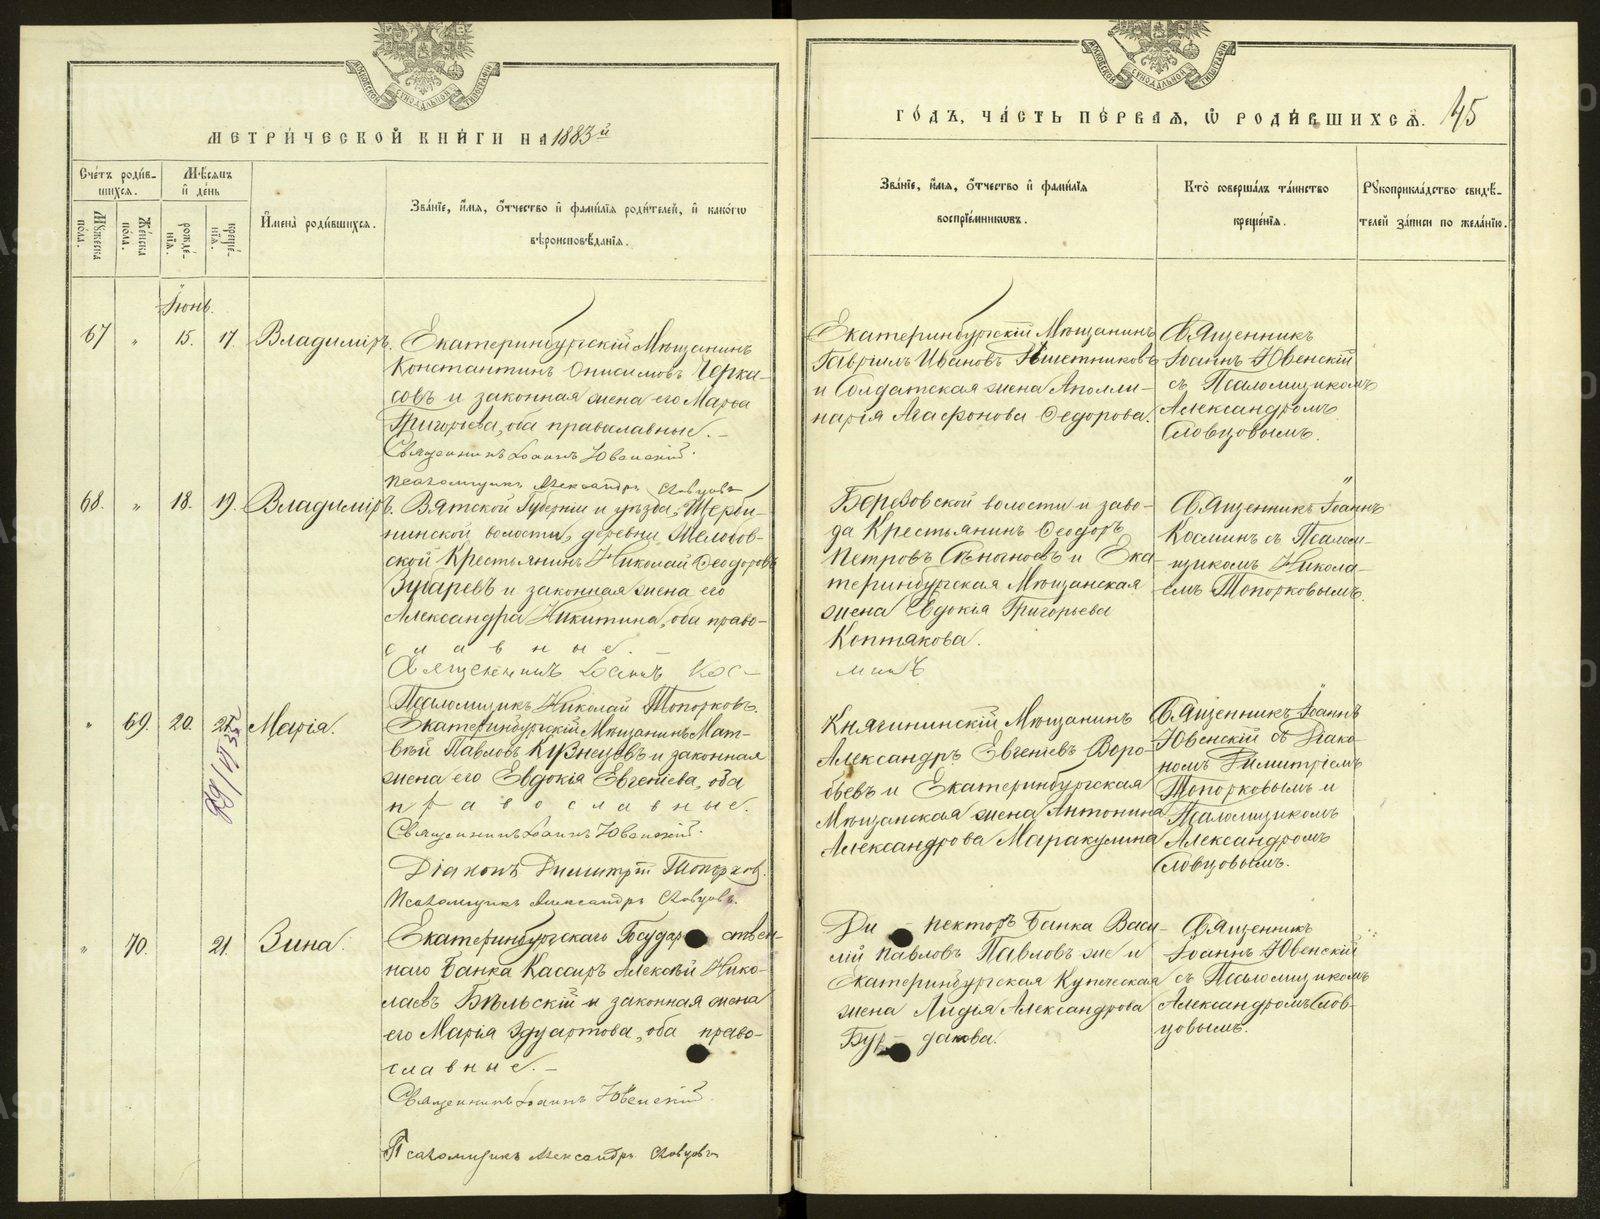 МЕТРИ́ЧЕСКОЙ КНИ́ГИ НА 1883й
Сче́тъ роди́в-
шихся.
Мѣ́сяцъ
и҆ де́нь
Мꙋ́жеска
пола.
Же́нска
пола.
рожде́-
нїя.
креще́-
нїя.
И҆мена̀ роди́вшихся.
Зва́нїе, и҆́мя, ѻ҆́тчество и҆ фами́лїя роди́телей, и҆ како́гѡ
вѣроисповѣ́данїя.
Іюнь.
67 " 15. 17. Владиміръ.
Екатеринбургскій Мѣщанинъ
Константинъ Онисимовъ Черка-
совъ и законная жена его Марѳа
Григорьева, оба православные. –
Священникъ Іоаннъ Ювенскій.
Псаломщикъ Александръ Словцовъ
68. " 18. 19. Владиміръ.
Вятской Губерніи и уѣзда, Щерби-
нинской волости, деревни
ской Крестьянинъ Николай Ѳеодоровъ
и законная жена его
Александра Никитина, оба право-
славные. –
Священникъ Іоаннъ Кос-
Псаломщикъ Николай Топорковъ.
" 69. 20. Марія.
Екатеринбургскій Мѣщанинъ Мат-
вѣй Павловъ Кузнецовъ и законная
жена его Евдокія Евгеніева, оба
православные.
Священникъ Іоаннъ Ювенскій.
Діаконъ Димитрій Топорков
Псаломщикъ Александръ Словцовъ.
" 70. 21. Зина.
Екатеринбургскаго Государ ствен-
наго Банка Кассиръ Алексѣй Нико-
лаевъ Бѣльскій и законная жена
его Марія Эдуартова, оба право-
славные. –
Священникъ Іоаннъ Ювенскій.
Псаломщикъ Александръ Словцовъ
ГО́ДЪ, ЧА́СТЬ ПЕ́РВАЯ, Ѡ҆ РОДИ́ВШИХСЯ. 45
Зва́нїе, и҆́мя, ѻ҆́тчество и҆ фами́лїя
воспрїе́мникѡвъ.
Кто̀ соверша́лъ та́инство
креще́нїя.
Рꙋкоприкла́дство свидѣ́-
телей за́писи по жела́нїю.
Екатеринбургскій Мѣщанинъ
Гавріилъ Ивановъ
и Солдатская жена Аполли-
нарія Агафонова Ѳедорова.
Священникъ
Іоаннъ Ювенскій
съ Псаломщикомъ
Александромъ
Словцовымъ.
Березовской волости и заво-
да Крестьянинъ Ѳеодоръ
Петровъ и Ека-
теринбургская Мѣщанская
жена Евдокія Григорьева
Коптякова.
минъ
Священникъ Іоаннъ
Косминъ съ Псалом-
щикомъ Никола-
емъ Топорковымъ.
Княгининскій Мѣщанинъ
Александръ Евгеніевъ Воро-
бьевъ и Екатеринбургская
Мѣщанская жена Антонина
Александрова Маракулина
Священникъ Іоаннъ
Ювенскій съ Діако-
номъ Димитріемъ
Топорковымъ и
Псаломщикомъ
Александромъ
Словцовымъ.
Ди - ректоръ Банка Васи-
лій Павловъ Павловъ же и
Екатеринбургская Купеческая
жена Лидія Александрова
Бур - дакова.
Священникъ
Іоаннъ Ювенскій
съ Псаломщикомъ
Александромъ Слов-
цовымъ.